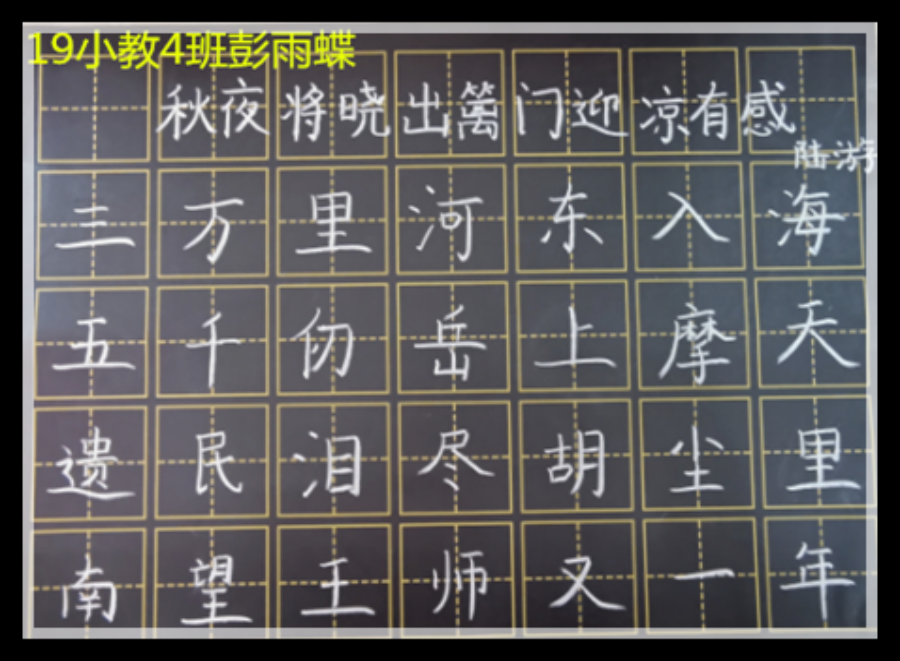 19小教4班彭雨蝶
秋夜将晓出篱门迎凉有感
陆游
三万里河东入海
五千仞岳上摩天
遗民泪尽胡尘里
南望王师又一年